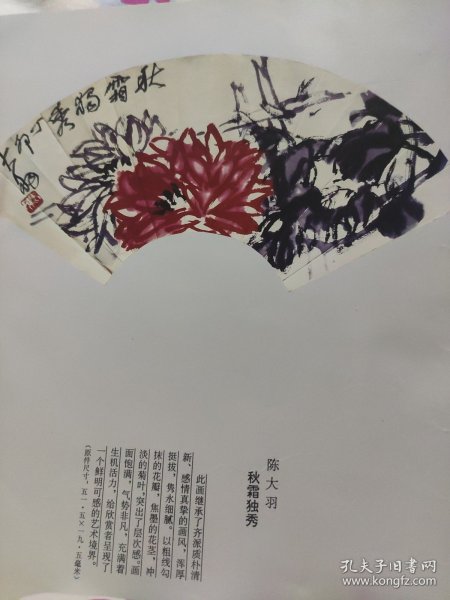 秋霜独秀
丁卯
大羽
陈大羽
秋霜独秀
此画继承了齐派质朴清
新、感情真挚的画风，浑厚
挺拔，隽永细腻。以粗线勾
抹的花瓣，焦墨的花茎，冲
淡的菊叶，突出了层次感。画
面饱满，气势非凡，充满着
生机活力，给欣赏者呈现了
一个鲜明可感的艺术境界。
（原件尺寸，五一·五×一九·五毫米）
孔夫子旧书网
kongfz.com